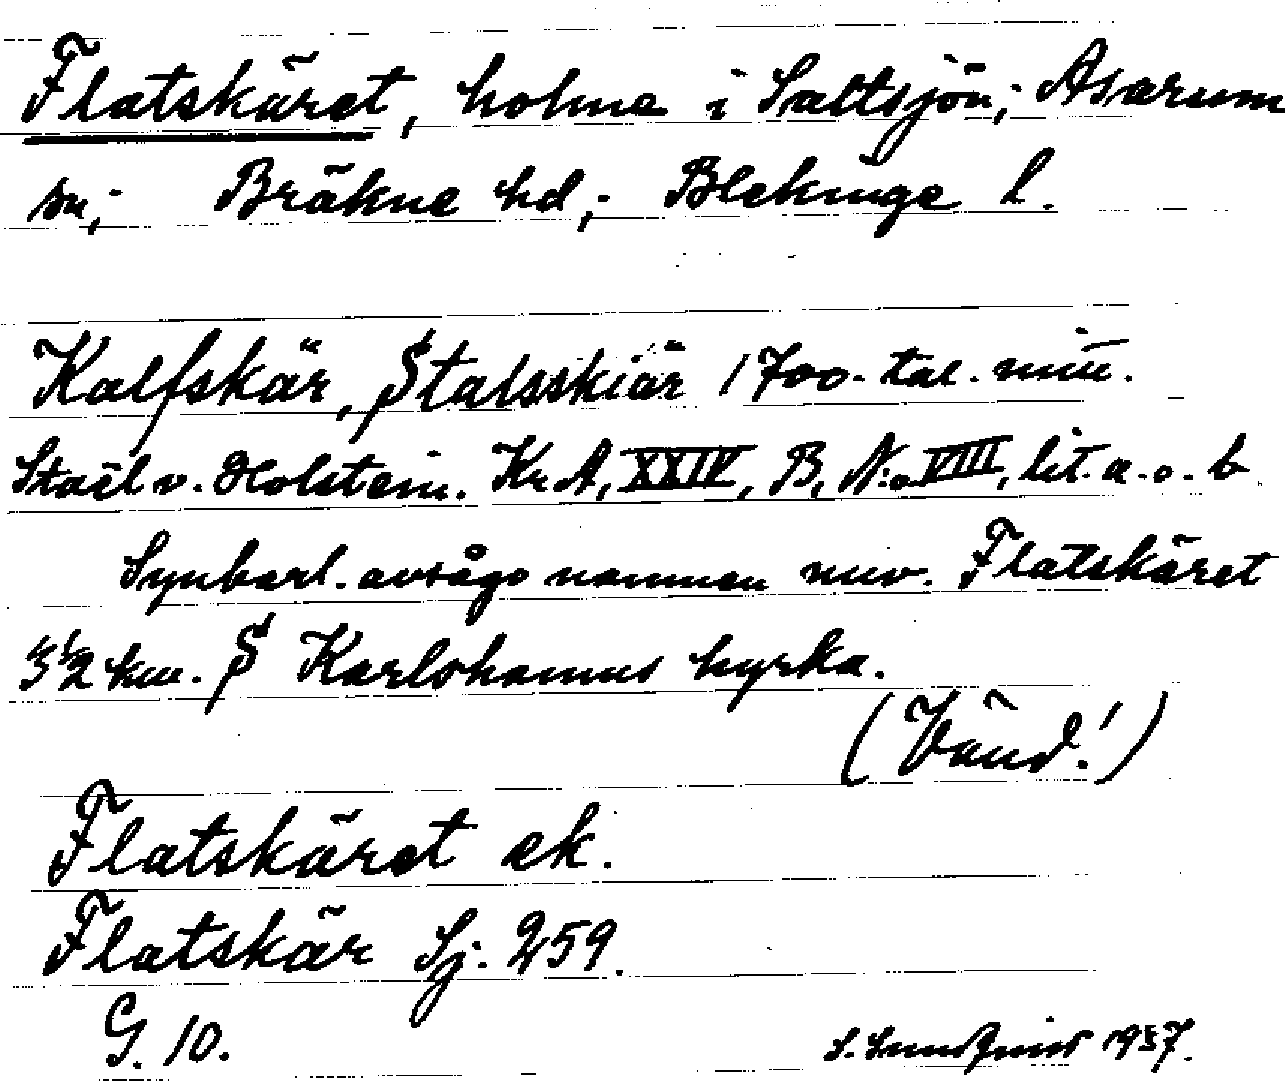 Flatskäret, holme i Saltsjön; Asarum
sn; Bräkne hd; Blekinge l.
Kalfskär, Stalsskiär 1700-tal. mitt.
Staël v. Holstein. Kr A, XXIV, B, N:o VIII, lit. a. o. b
Synbarl. avsågo namnen nuv. Flatskäret
3 1/2 km. S Karlshamns kyrka.
(Vänd!)
Flatskäret ek.
Flatskär Sj. 259.
G. 10.
S. Sundquist 1937.